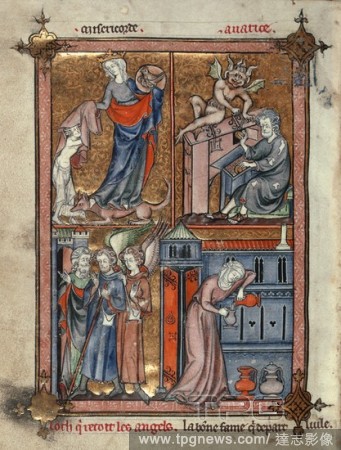 misericorde auarice.
loth q recoit les angels. la bone fame q depart luile.
www.tpgnews.com | 達志影像